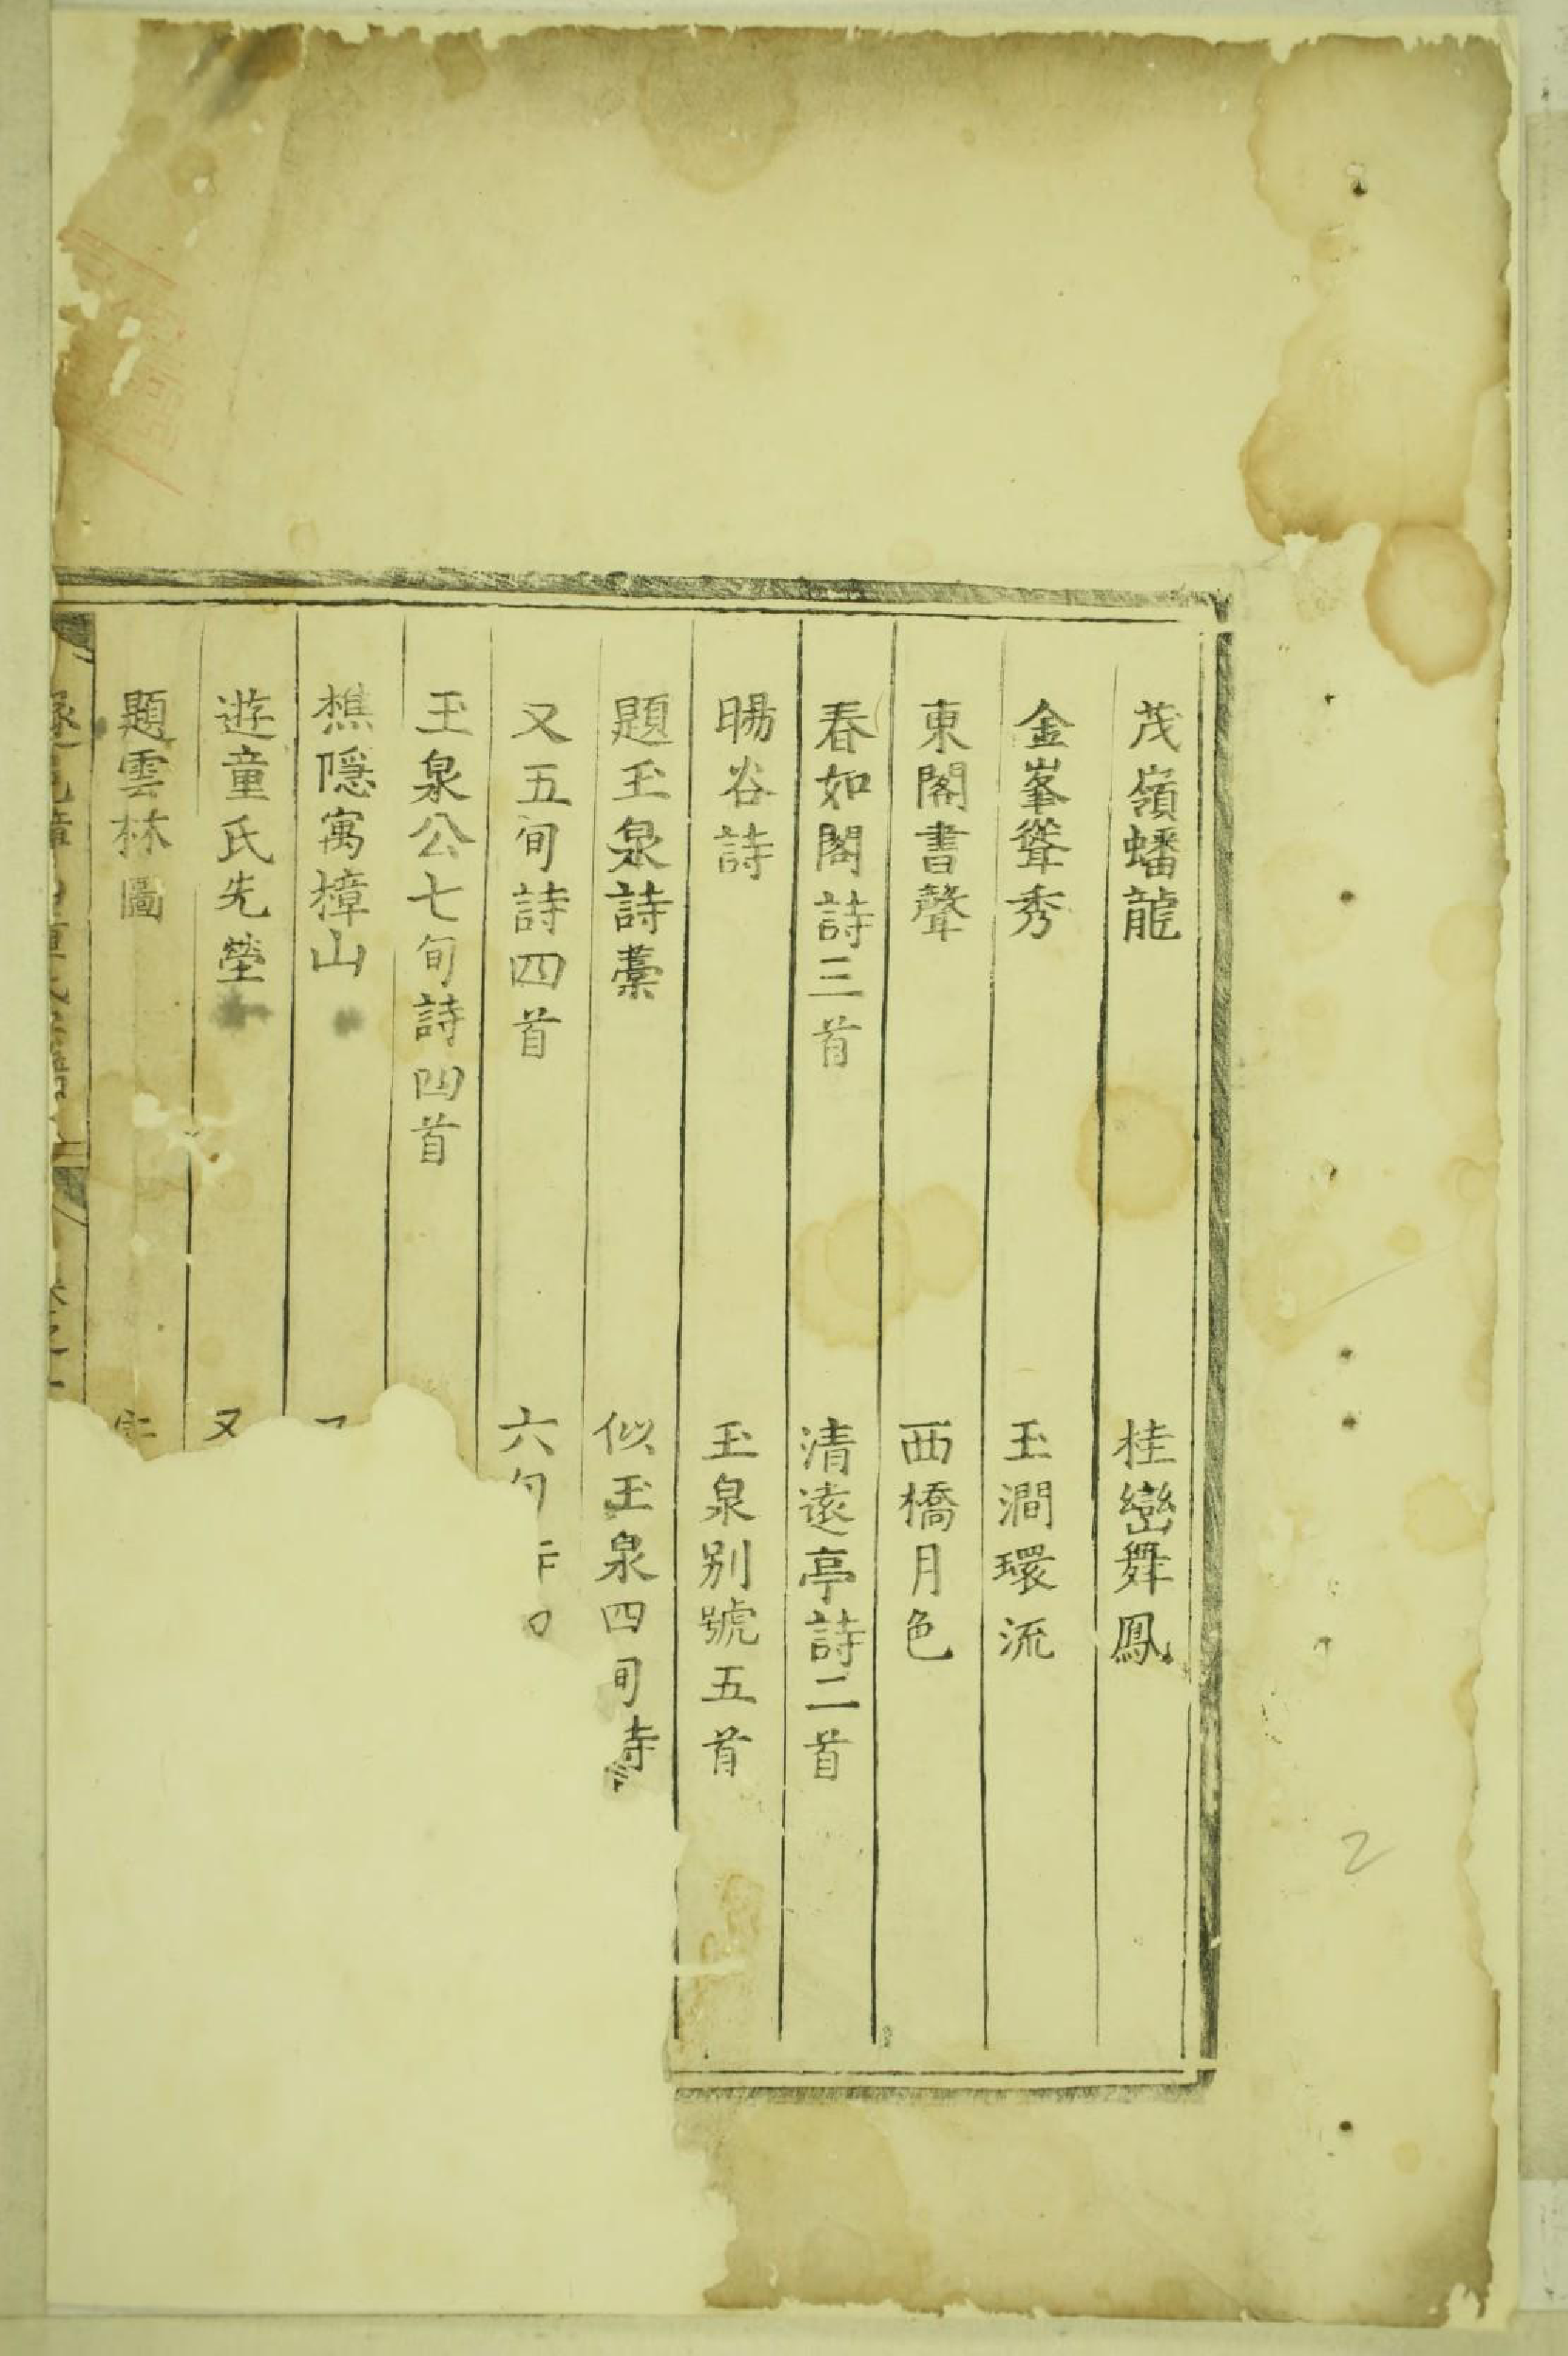 茂嶺蟠龍　桂巒舞鳳
金峯聳秀　玉澗環流
東閣書聲　西橋月色
春如閣詩三首　清遠亭詩二首
暘谷詩　玉泉別號五首
題玉泉詩藁　似玉泉四旬詩
又五旬詩四首　六旬
玉泉公七旬詩四首
樵隱寓樟山
遊童氏先塋　又
題雲林圖
2